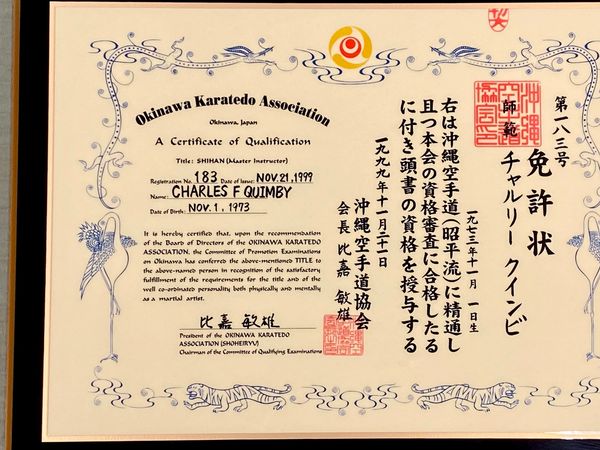 Okinawa Karatedo Association
Okinawa, Japan
A Certificate of Qualification
Title: SHIHAN (Master Instructor)
Registration No. 183 Date of Issue: NOV. 21, 1999
Name: CHARLES F QUIMBY
Date of Birth: NOV. 1, 1973
It is hereby certified that, upon the recommendation
of the Board of Directors of the OKINAWA KARATEDO
ASSOCIATION, the Committee of Promotion Examinations
on Okinawa has conferred the above-mentioned TITLE to
the above-named person in recognition of the satisfactory
fulfillment of the requirements for the title and of the
well co-ordinated personality both physically and mentally
as a martial artist.
比嘉 敏雄
President of the OKINAWA KARATEDO
ASSOCIATION (SHOHEIRYU)
Chairman of the Committee of Qualifying Examinations
第一八三号
免許状
師範 チャルリー クインビ
一九七三年十一月 一日生
右は沖縄空手道(昭平流)に精通し
且つ本会の資格審査に合格したる
に付き頭書の資格を授与する
一九九九年十一月二十一日
沖縄空手道協会
会長 比嘉 敏雄